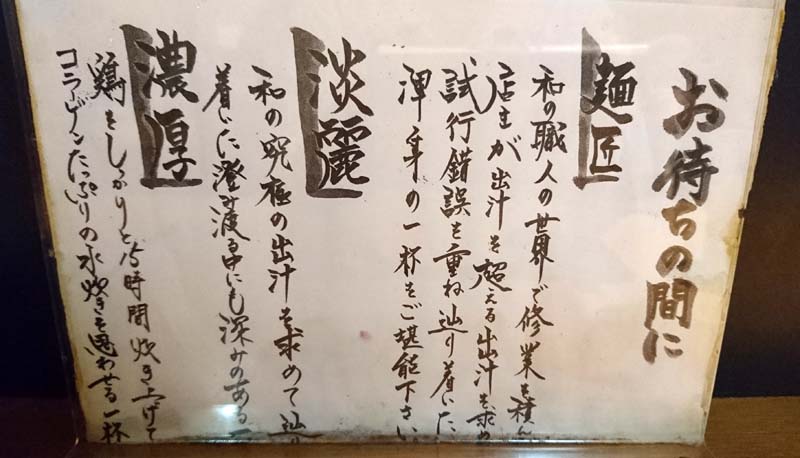 お待ちの間に
麺匠
和の職人の世界で修業を積ん
店主が出汁を超える出汁を求め
試行錯誤を重ね辿り着いた
渾身の一杯をご堪能下さい
淡麗
和の究極の出汁を求めて辿り
着いた澄み渡る中にも深みのある一
濃厚
鶏をしっかりと15時間炊き上げて
コラーゲンたっぷりの水炊きを思わせる一杯